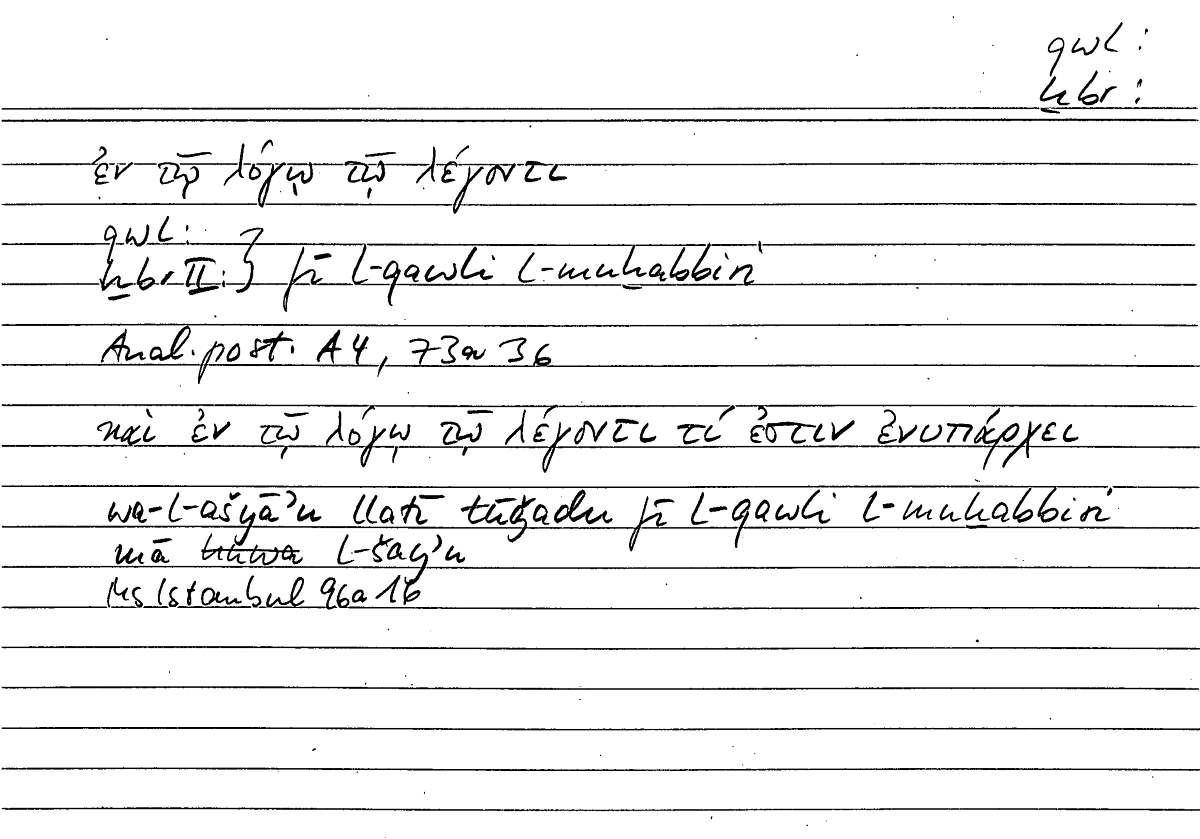 qwl:
ḫbr:
ἐν τῷ λόγῳ τῷ λέγοντι
qwl:
ḫbr II: } fī l-qawli l-muḫabbiri
Anal. post. A4, 73a 36
καὶ ἐν τῷ λόγῳ τῷ λέγοντι τί ἐστιν ἐνυπάρχει
wa-l-ašyāʾu llatī tūǧadu fī l-qawli l-muḫabbiri
mā huwa l-šayʾu
Ms Istanbul 96a 16